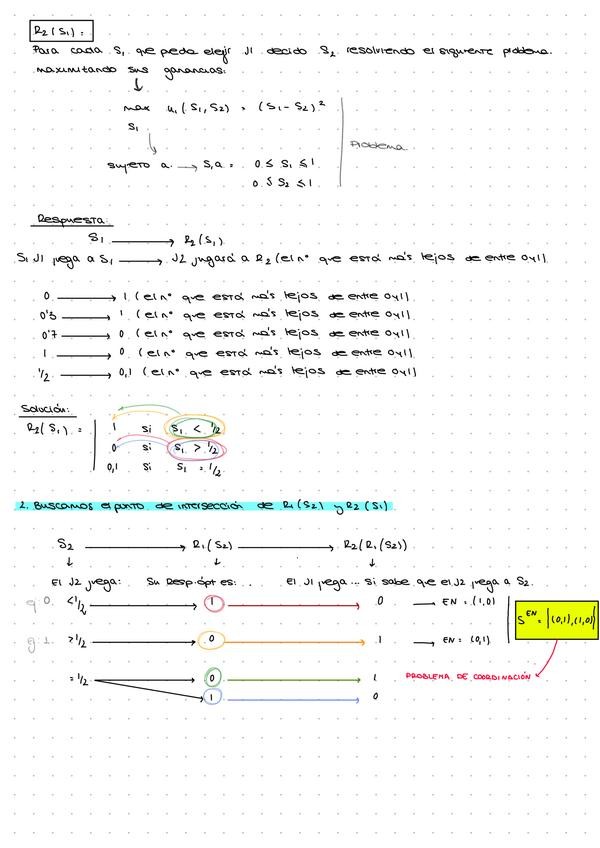 R2(S1):
Para cada S1 que pueda elegir J1 decido S2 resolviendo el siguiente problema.
maximizando sus ganancias:
↓
max u1(S1, S2) = (S1 - S2)²
S1
sujeto a → s,a = 0 ≤ S1 ≤ 1
0 ≤ S2 ≤ 1
Problema
Respuesta:
S1 → R2(S1)
Si J1 juega a S1 → J2 jugará a R2 (el nº que está más lejos de entre 0 y 1)
0 → 1 (el nº que está más lejos de entre 0 y 1)
0'3 → 1 (el nº que está más lejos de entre 0 y 1)
0'7 → 0 (el nº que está más lejos de entre 0 y 1)
1 → 0 (el nº que está más lejos de entre 0 y 1)
1/2 → 0,1 (el nº que está más lejos de entre 0 y 1)
Solución:
R2(S1) = 1 si S1 < 1/2
0 si S1 > 1/2
0,1 si S1 = 1/2
2. Buscamos el punto de intersección de R1(S2) y R2(S1)
S2 → R1(S2) → R2(R1(S2))
↓ ↓ ↓
El J2 juega: Su Resp. ópt es: .. El J1 juega ... si sabe que el J2 juega a S2.
ej 0. <1/2 → 1 → 0 → EN = (1,0)
ej 1. >1/2 → 0 → 1 → EN = (0,1)
S^EN = {(0,1),(1,0)}
= 1/2 → 0 → 1
1 → 0
PROBLEMA DE COORDINACIÓN